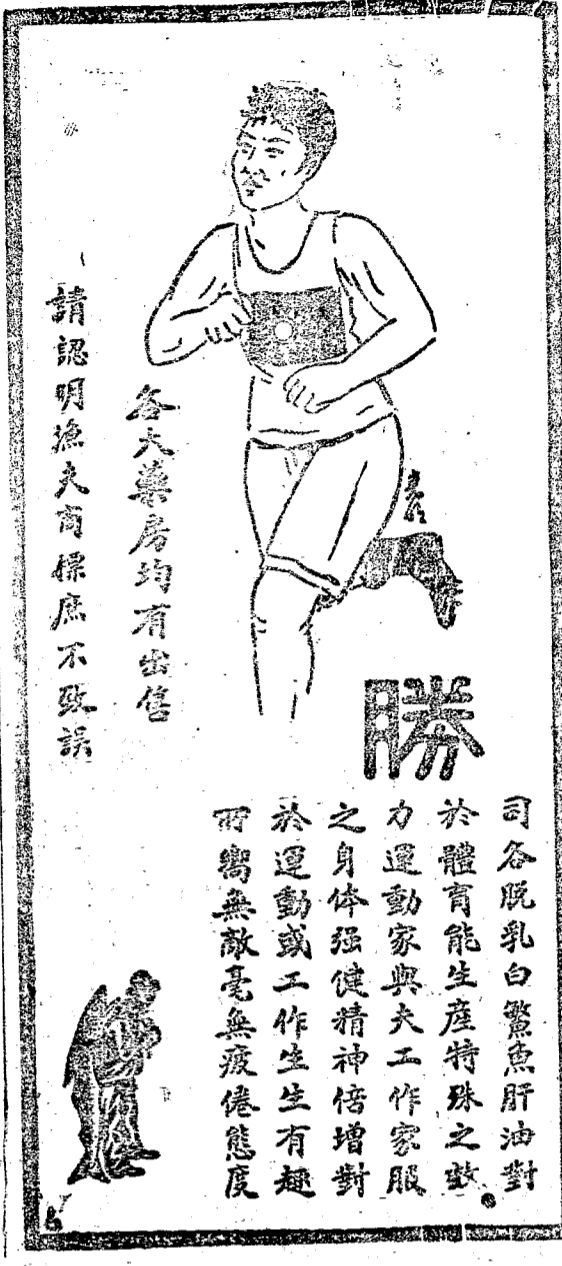 勝
司各脱乳白鰵魚肝油對
於體育能生産特殊之效
力運動家與夫工作家服
之身体强健精神倍增對
於運動或工作生生有趣
所嚮無敵毫無疲倦態度
各大藥房均有出售
請認明漁夫商標庶不致誤